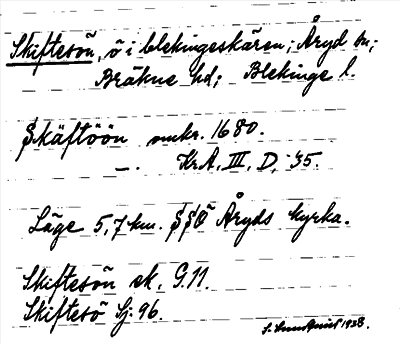 Skiftesön, ö i blekingeskären; Åryd sn;
Bräkne hd; Blekinge l.
Skäftöön omkr. 1680.
—. Kr.A. III. D. 35.
Läge 5,7 km. SSÖ Åryds kyrka.
Skiftesön ek. G.11.
Skiftesö Sj. 96.
1938.